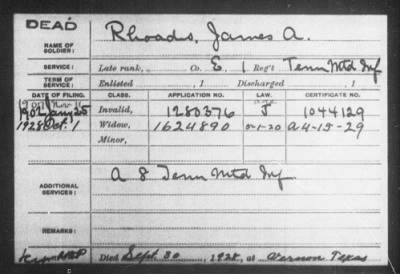 DEAD
NAME OF SOLDIER: Rhoads, James A.
SERVICE: Late rank, Co. E, 1 Reg't Tenn Mtd Inf
TERM OF SERVICE: Enlisted , 1 Discharged , 1
DATE OF FILING. CLASS. APPLICATION NO. LAW. CERTIFICATE NO.
1902 Jany 25 Invalid, 1280376 J 1044129
1928 Oct. 1 Widow, 1624890 5-1-20 A 4-15-29
Minor,
ADDITIONAL SERVICES: A 8 Tenn Mtd Inf.
REMARKS:
Died Sept. 30, 1928, at Vernon Texas